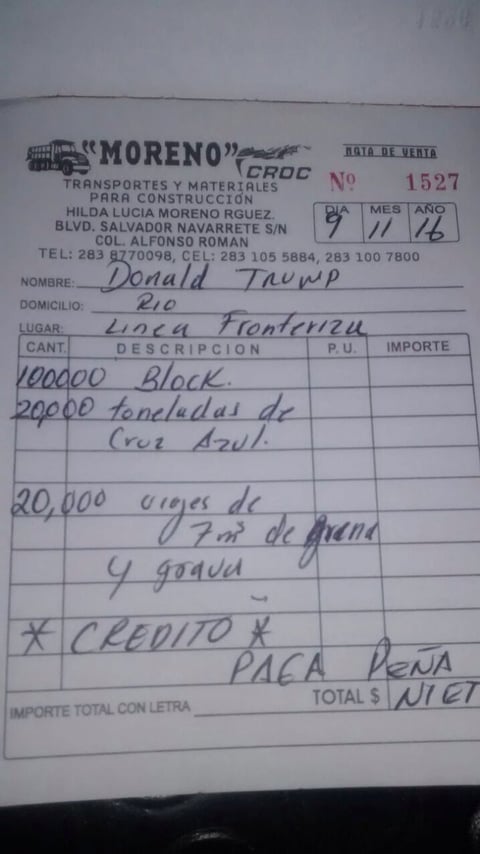 "MORENO"
CROC
NOTA DE VENTA
TRANSPORTES Y MATERIALES
PARA CONSTRUCCIÓN
Nº 1527
HILDA LUCIA MORENO RGUEZ.
BLVD. SALVADOR NAVARRETE S/N
COL. ALFONSO ROMAN
DIA MES AÑO
9 11 16
TEL: 283 8770098, CEL: 283 105 5884, 283 100 7800
NOMBRE: Donald TRUMP
DOMICILIO: RIO
LUGAR: Linea Fronteriza
CANT. DESCRIPCION P.U. IMPORTE
100000 Block.
20,000 toneladas de
Cruz Azul.
20,000 viajes de
7m³ de grena
y grava
* CREDITO *
PAGA PEÑA
IMPORTE TOTAL CON LETRA TOTAL $ NIET